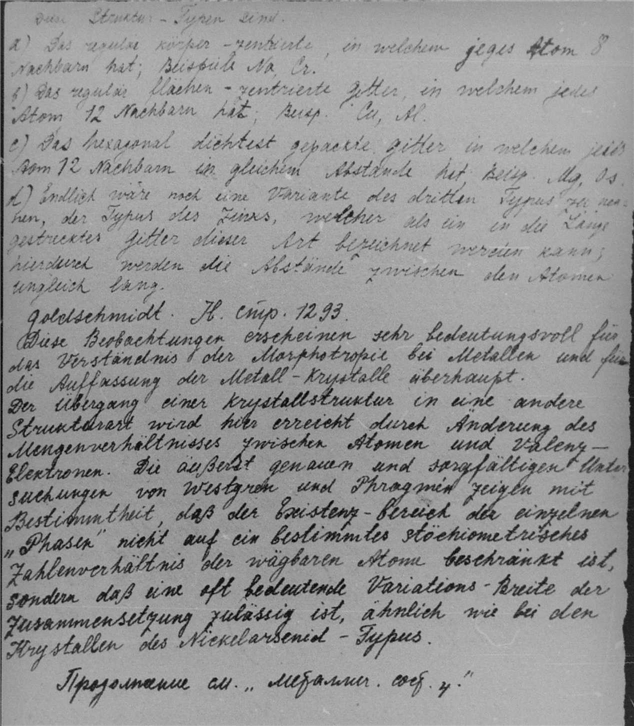 Diese Struktur-Typen sind.
a) Das regulär körper-zentrierte, in welchem jeges Atom 8
Nachbarn hat; Beispiele Na, Cr.
b) Das regulär flächen-zentrierte gitter, in welchem jedes
Atom 12 Nachbarn hat; Beisp. Cu, Al.
c) Das hexagonal dichtest gepackte gitter in welchem jedes
Atom 12 Nachbarn in gleichem Abstande hat, Beisp. Mg, Os.
d) Endlich wäre noch eine Variante des dritten Typus zu nen-
nen, der Typus des Zinks, welcher als ein in die Länge
gestrecktes gitter dieser Art bezeichnet werden kann;
hierdurch werden die Abstände zwischen den Atomen
ungleich lang.
Goldschmidt. Н. стр. 1293.
Diese Beobachtungen erscheinen sehr bedeutungsvoll für
das Verständnis der Morphotropie bei Metallen und für
die Auffassung der Metall-Krystalle überhaupt.
Der Übergang einer Krystallstruktur in eine andere
Strukturart wird hier erreicht durch Änderung des
Mengenverhältnisses zwischen Atomen und Valenz-
Elektronen. Die äußerst genauen und sorgfältigen Unter
suchungen von Westgren und Phragmin zeigen mit
Bestimmtheit, daß der Existenz-Bereich der einzelnen
„Phasen" nicht auf ein bestimmtes stöchiometrisches
Zahlenverhältnis der wägbaren Atome beschränkt ist,
sondern daß eine oft bedeutende Variations-Breite der
Zusammensetzung zulässig ist, ähnlich wie bei den
Krystallen des Nickelarsenid-Typus.
Продолжение см. „Металлич. соед.